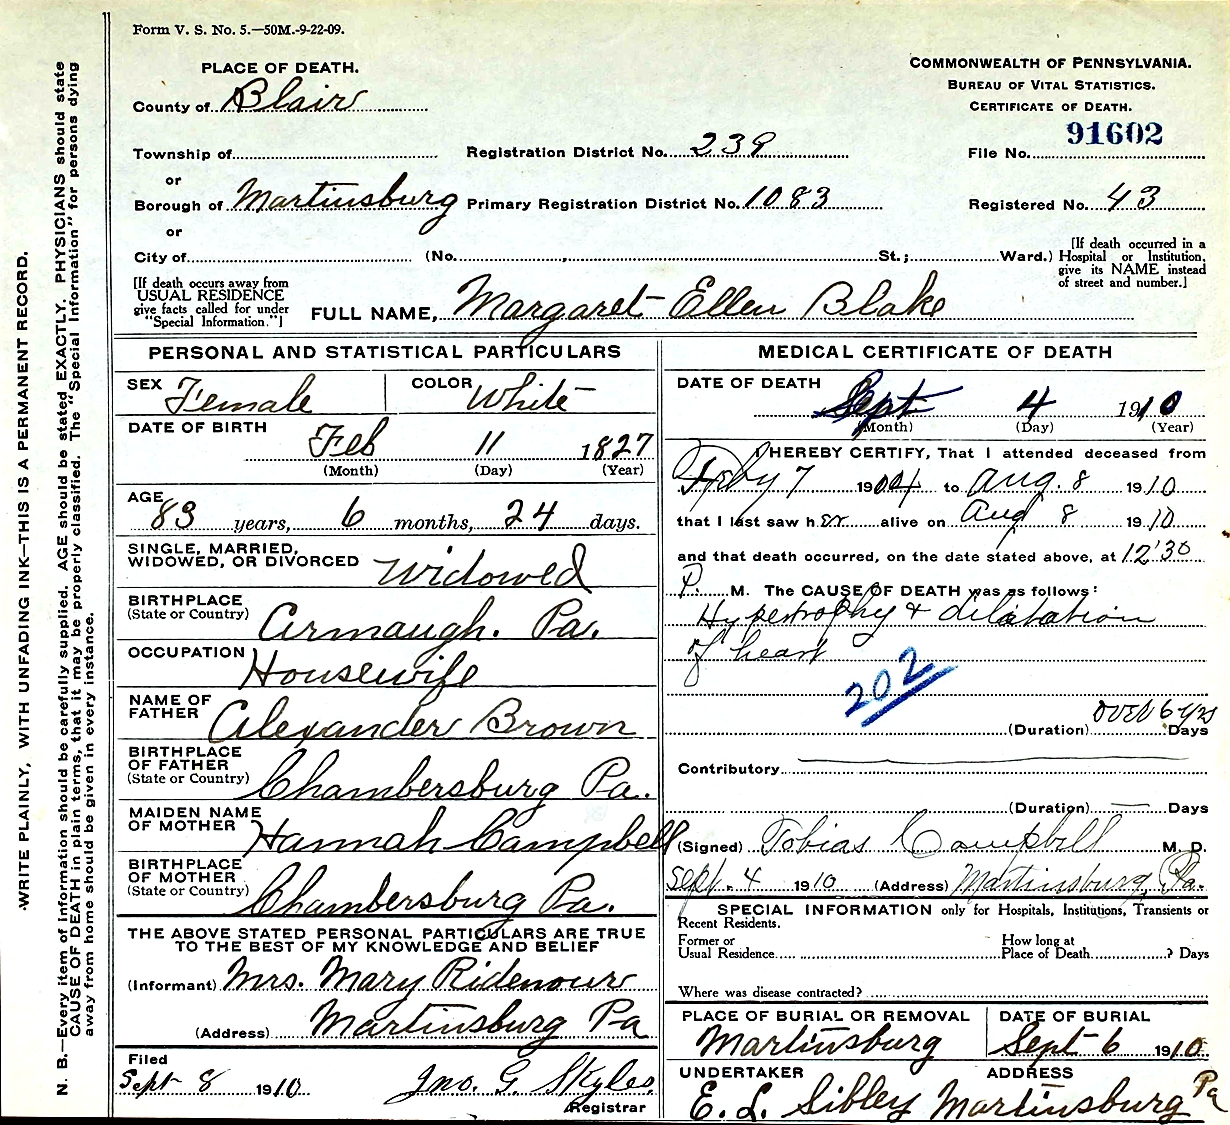 Form V. S. No. 5.—50M.-9-22-09.
PLACE OF DEATH.
County of Blair
Township of
or
Borough of Martinsburg
or
City of (No. , St.; Ward.)
COMMONWEALTH OF PENNSYLVANIA.
BUREAU OF VITAL STATISTICS.
CERTIFICATE OF DEATH.
Registration District No. 239
File No. 91602
Primary Registration District No. 1083
Registered No. 43
[If death occurred in a
Hospital or Institution,
give its NAME instead
of street and number.]
[If death occurs away from
USUAL RESIDENCE
give facts called for under
"Special Information."]
FULL NAME, Margaret Ellen Blake
PERSONAL AND STATISTICAL PARTICULARS
SEX Female COLOR White
DATE OF BIRTH
Feb 11 1827
(Month) (Day) (Year)
AGE
83 years, 6 months, 24 days.
SINGLE, MARRIED,
WIDOWED, OR DIVORCED Widowed
BIRTHPLACE
(State or Country) Armaugh. Pa.
OCCUPATION Housewife
NAME OF
FATHER Alexander Brown
BIRTHPLACE
OF FATHER
(State or Country) Chambersburg Pa.
MAIDEN NAME
OF MOTHER Hannah Campbell
BIRTHPLACE
OF MOTHER
(State or Country) Chambersburg Pa.
THE ABOVE STATED PERSONAL PARTICULARS ARE TRUE
TO THE BEST OF MY KNOWLEDGE AND BELIEF
(Informant) Mrs. Mary Ridenour
(Address) Martinsburg Pa
Filed
Sept 8 1910 Jno. G. Skyles.
Registrar
MEDICAL CERTIFICATE OF DEATH
DATE OF DEATH
Sept 4 1910
(Month) (Day) (Year)
I HEREBY CERTIFY, That I attended deceased from
Feby 7 1904 to Aug. 8 1910
that I last saw her alive on Aug 8 1910
and that death occurred, on the date stated above, at 12'30
P. M. The CAUSE OF DEATH was as follows:
Hypertrophy & dilatation
of heart
202
(Duration) over 6 yrs Days
Contributory
(Duration) — Days
(Signed) Tobias Campbell M. D.
Sept. 4 1910 (Address) Martinsburg, Pa.
SPECIAL INFORMATION only for Hospitals, Institutions, Transients or
Recent Residents.
Former or
Usual Residence
How long at
Place of Death ? Days
Where was disease contracted?
PLACE OF BURIAL OR REMOVAL
Martinsburg
DATE OF BURIAL
Sept 6 1910
UNDERTAKER
E. L. Sibley
ADDRESS
Martinsburg Pa
WRITE PLAINLY, WITH UNFADING INK—THIS IS A PERMANENT RECORD.
N. B.—Every item of information should be carefully supplied. AGE should be stated EXACTLY. PHYSICIANS should state
CAUSE OF DEATH in plain terms, that it may be properly classified. The "Special Information" for persons dying
away from home should be given in every instance.